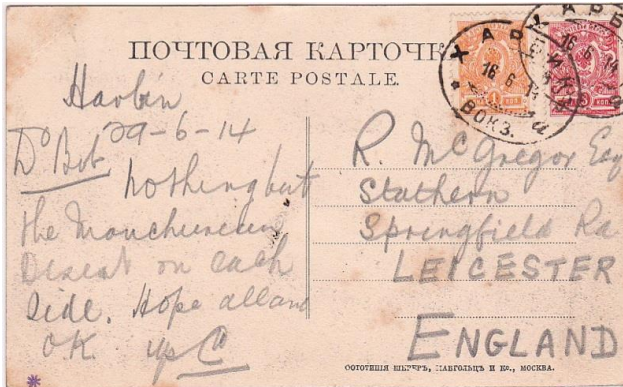 ПОЧТОВАЯ КАРТОЧК
CARTE POSTALE.
ХАРБ
16 6 14
ВОКЗ.
Harbin
29-6-14
Dr Bob
nothing but
the Manchurian
Desert on each
side. Hope all are
O.K.
R. McGregor Esq
Stathern
Springfield Rd
LEICESTER
ENGLAND
ФОТОТИПІЯ ШЕРЕРЪ, НАБГОЛЬЦЪ И Ко., МОСКВА.